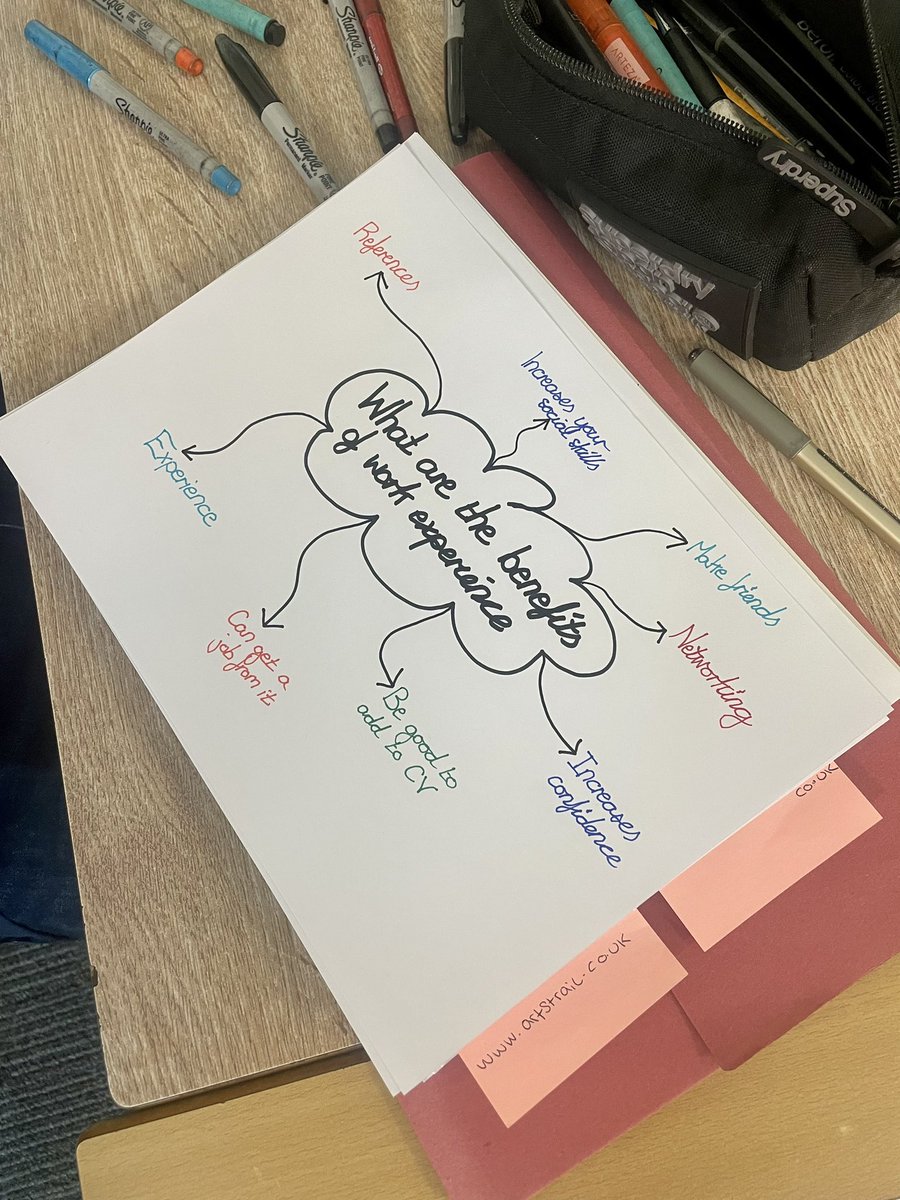 What are the benefits
of work experience
References
Increases your
social skills
Make friends
Networking
Increases
confidence
Be good to
add to CV
Can get a
job from it
Experience
www.artstrail.co.uk
co.uk
Sharpie
Sharpie
Sharpie
Sharpie
Superdry
ARTEZA